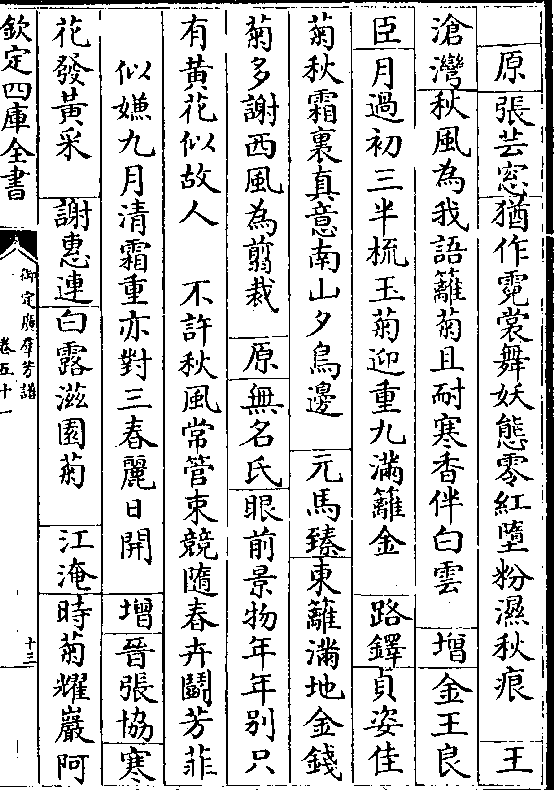 原張芸窓猶作霓裳舞妖態零紅墮粉濕秋痕　王
滄灣秋風為我語籬菊且耐寒香伴白雲　增金王良
臣月過初三半梳玉菊迎重九滿籬金　路鐸貞姿佳
菊秋霜裏真意南山夕鳥邊　元馬臻東籬滿地金錢
菊多謝西風為翦裁　原無名氏眼前景物年年别只
有黃花似故人　不許秋風常管束競隨春卉鬬芳菲
似嫌九月清霜重亦對三春麗日開　增晉張協寒
花發黃采　謝惠連白露滋園菊　江淹時菊耀巖阿
欽定四庫全書
御定廣羣芳譜
卷五十
十三